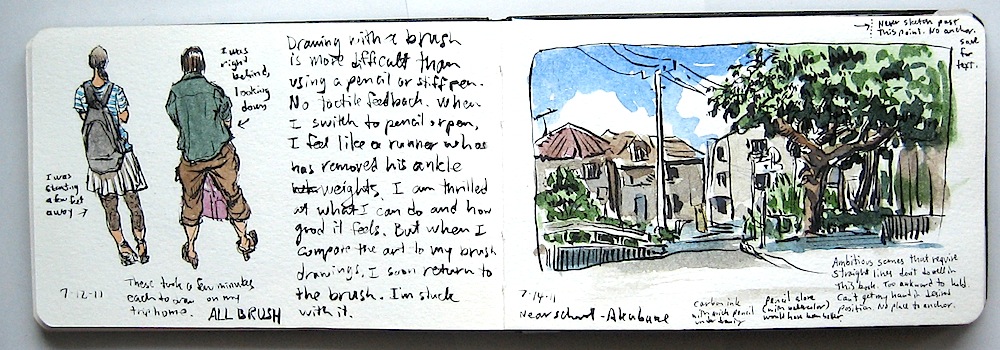 I was
right
behind,
looking
down
I was
seating
a few feet
away →
7-12-11
These took a few minutes
each to draw on my
trip home. ALL BRUSH
Drawing with a brush
is more difficult than
using a pencil or stiff pen.
No tactile feedback. When
I switch to pencil or pen,
I feel like a runner who
has removed his ankle
weights. I am thrilled
at what I can do and how
good it feels. But when I
compare the art to my brush
drawings, I soon return to
the brush. I'm stuck
with it.
→ Never sketch past
this point. No anchor.
save
for
text.
7-14-11
Near school - Akabane
Carbon ink
with quick pencil
under drawing
Pencil alone
(with watercolor)
would have been better.
Ambitious scenes that require
straight lines don't do well in
this book. Too awkward to hold.
Can't get my hand in desired
position. No place to anchor.